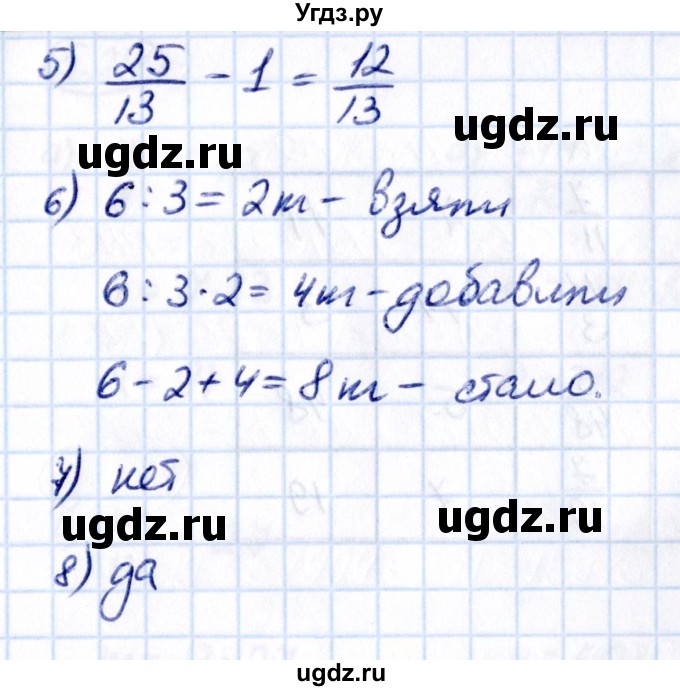 Угдз.ру
5) 25/13 - 1 = 12/13
ugdz.ru
ugdz.ru
6) 6 : 3 = 2 т - взяли
6 : 3 · 2 = 4 т - добавили
6 - 2 + 4 = 8 т - стало.
7) нет
ugdz.ru
ugdz.ru
8) да
ugdz.ru